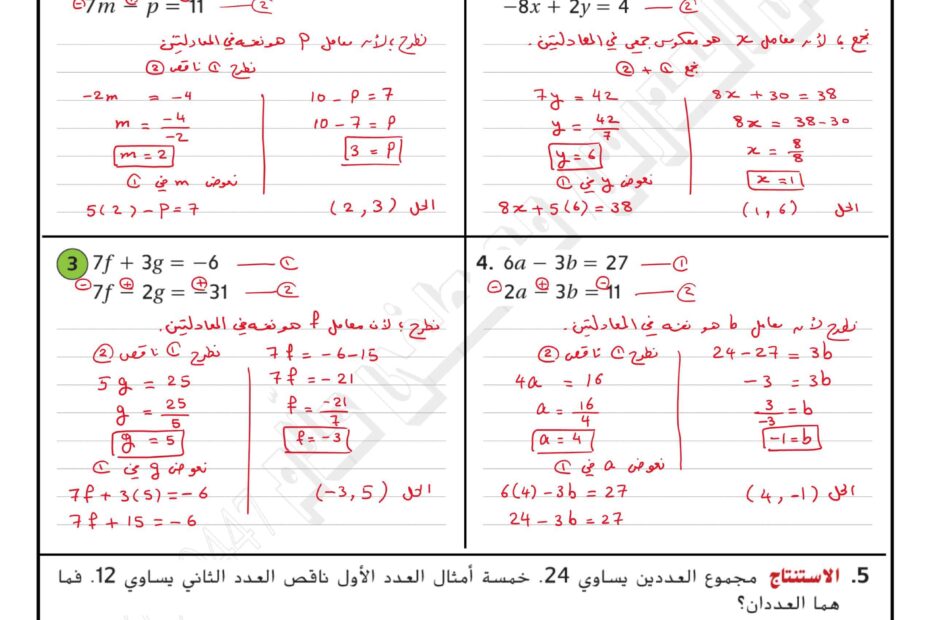 7m - p = 11 ——②
نطرح ؛ لأن معامل p هو نفسه في المعادلتين
نطرح ① ناقص ②
-2m = -4
m = -4/-2
m = 2
نعوض m في ①
5(2) - p = 7
10 - p = 7
10 - 7 = p
3 = p
الحل (2, 3)
-8x + 2y = 4 ——②
نجمع ؛ لأن معامل x هو معكوس جمعي في المعادلتين.
نجمع ① + ②
7y = 42
y = 42/7
y = 6
نعوض y في ①
8x + 5(6) = 38
8x + 30 = 38
8x = 38-30
x = 8/8
x = 1
الحل (1, 6)
3 7f + 3g = -6 ——①
⊖7f ⊕- 2g = ⊕-31 ——②
نطرح ؛ لأن معامل f هو نفسه في المعادلتين.
نطرح ① ناقص ②
5g = 25
g = 25/5
g = 5
نعوض g في ①
7f + 3(5) = -6
7f + 15 = -6
7f = -6-15
7f = -21
f = -21/7
f = -3
الحل (-3, 5)
4. 6a - 3b = 27 ——①
⊖2a ⊕- 3b = ⊖11 ——②
نطرح لأن معامل b هو نفسه في المعادلتين.
نطرح ① ناقص ②
4a = 16
a = 16/4
a = 4
نعوض a في ①
6(4) - 3b = 27
24 - 3b = 27
24 - 27 = 3b
-3 = 3b
3/-3 = b
-1 = b
الحل (4, -1)
5. الاستنتاج مجموع العددين يساوي 24. خمسة أمثال العدد الأول ناقص العدد الثاني يساوي 12. فما
هما العددان؟